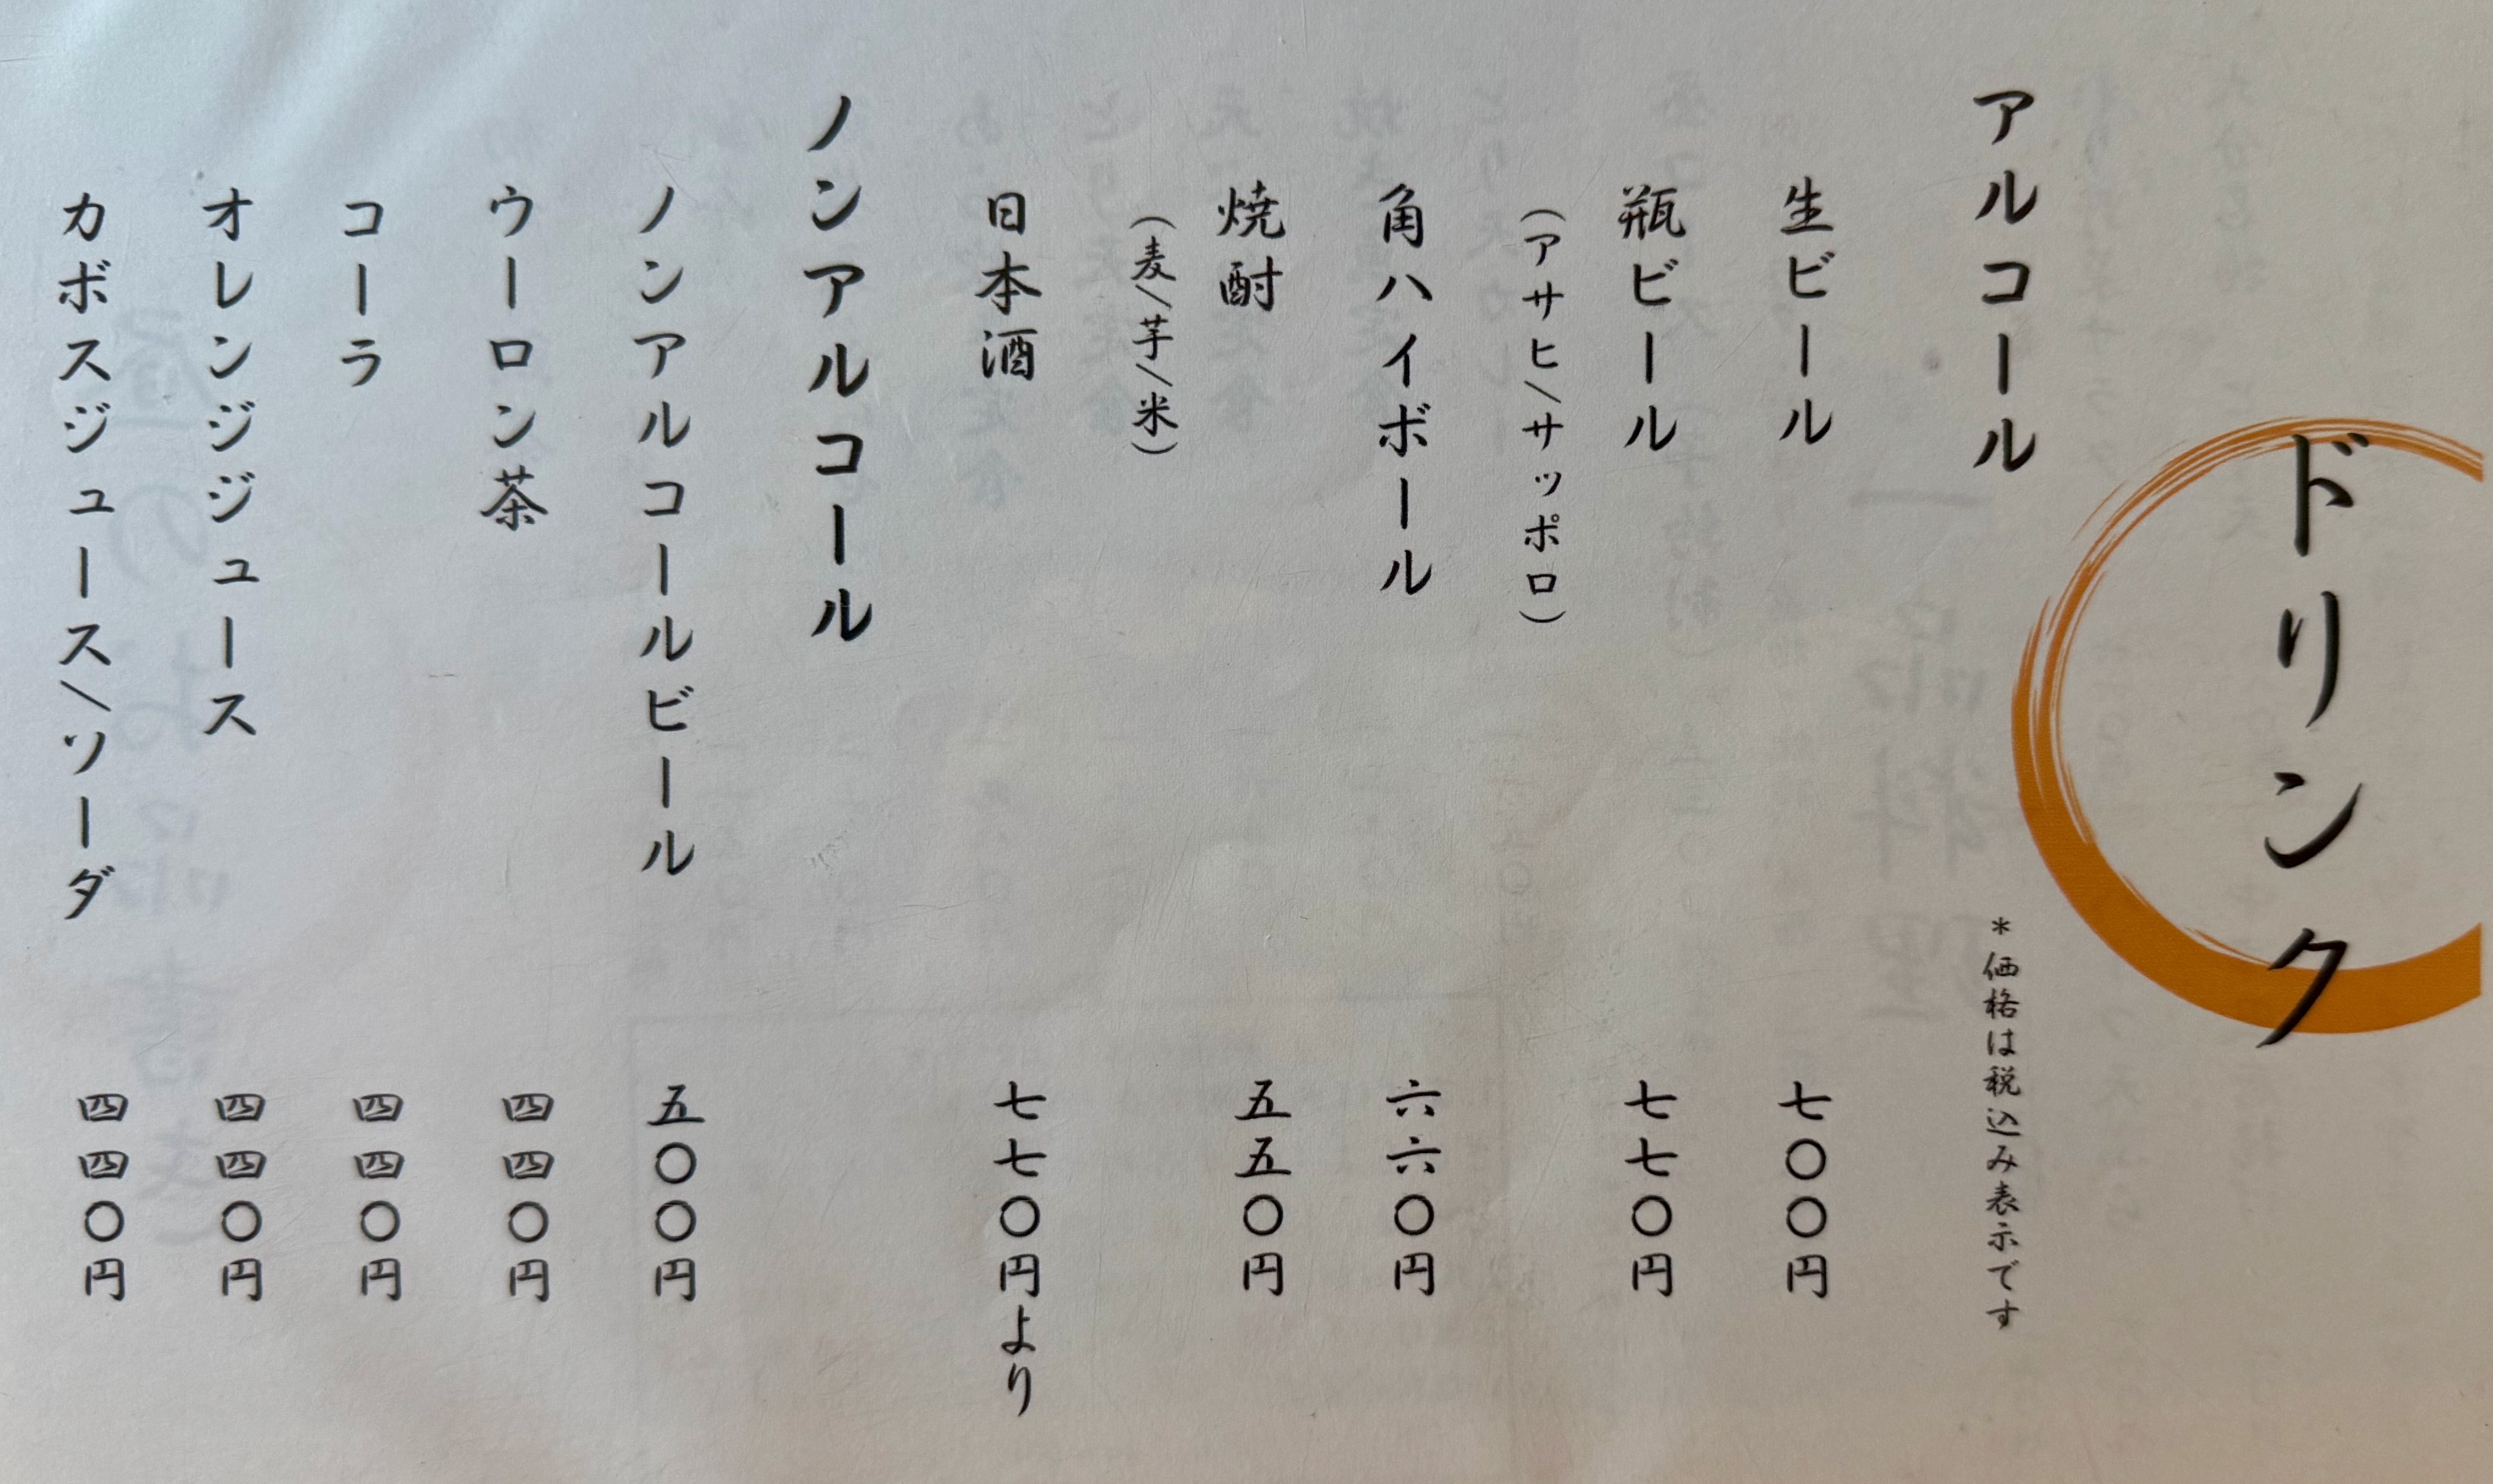 ドリンク
アルコール
＊価格は税込み表示です
生ビール 七〇〇円
瓶ビール 七七〇円
（アサヒ/サッポロ）
角ハイボール 六六〇円
焼酎 五五〇円
（麦/芋/米）
日本酒 七七〇円より
ノンアルコール
ノンアルコールビール 五〇〇円
ウーロン茶 四四〇円
コーラ 四四〇円
オレンジジュース 四四〇円
カボスジュース/ソーダ 四四〇円